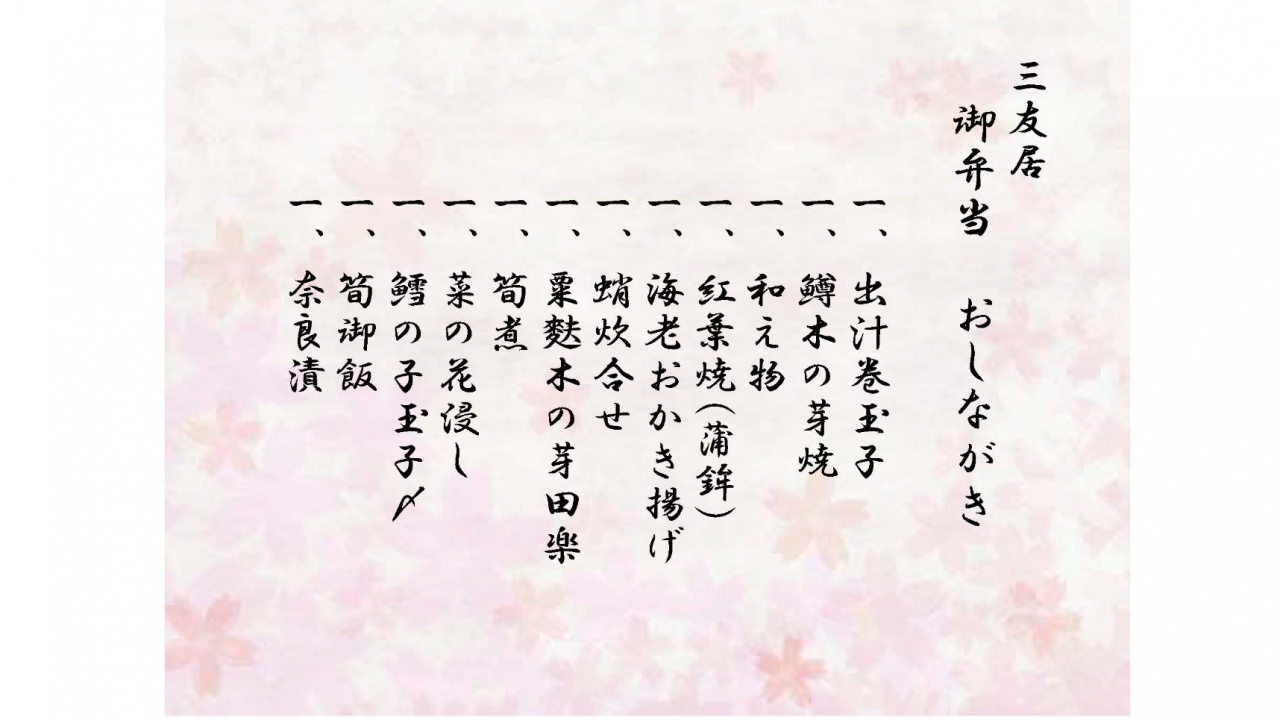 三友居
御弁当 おしながき
一、出汁巻玉子
一、鱒木の芽焼
一、和え物
一、紅葉焼(蒲鉾)
一、海老おかき揚げ
一、蛸炊合せ
一、粟麩木の芽田楽
一、筍煮
一、菜の花浸し
一、鱈の子玉子〆
一、筍御飯
一、奈良漬